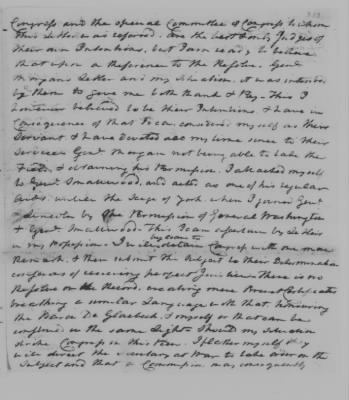 Congress and the special Committee of Congress to whom
This Letter was referred. are the best & only Judges of
their own Intentions, but I am ready to believe
that upon a Reference to the Resolve, Genl
Morgans Letter and my Situation. it was intended
by them to give me both thanks & Pay— This I
however believed to be their Intentions & have in
Consequence of that Fact considered myself as their
Servant & have devoted all my time since to their
Service Genl Morgan not being able to take the
Field, & obtaining his Permission. I attached myself
to Genl Smallwood, and acted as one of his regular
Aids. untill the Siege of York. when I joined Genl
Lincoln by Permission of General Washington
& Genl Smallwood. This I can ascertain by Letters
in my Possession. I will Congress with one more
Remark. & then submit the Subject to their Determination
confident of receiving perfect Justice. There is no
Resolve on the Record. creating more Brevet
breathing a similar Language with that honouring
the Baron De Glaubeck. & myself or that can be
construed in the same Light— Should my Situation
strike Congress in this View. I flatter myself they
will direct the Secretary at War to take order on the
Subject and that a Commission may consequently